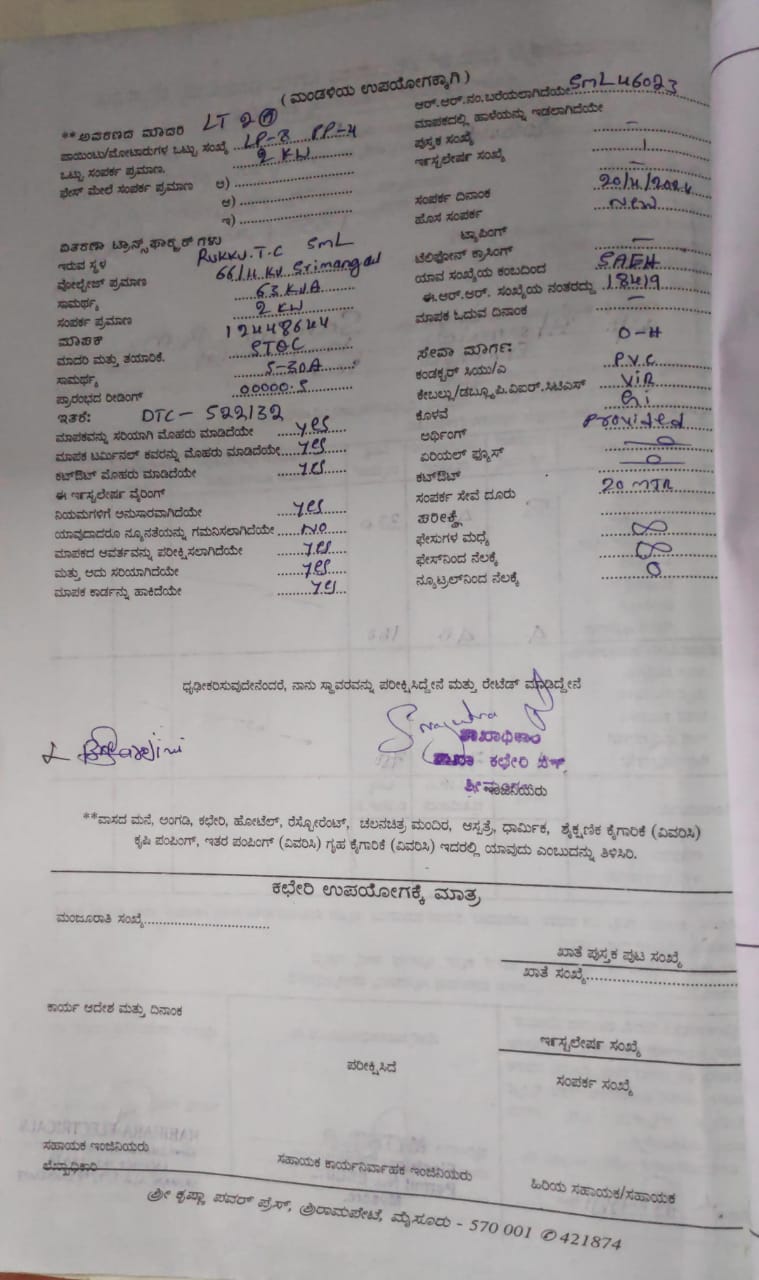 ( ಮಂಡಳಿಯ ಉಪಯೋಗಕ್ಕಾಗಿ )
**ಆವರಣದ ಮಾದರಿ LT 2
ಪಾಯಿಂಟು/ಮೋಟಾರುಗಳ ಒಟ್ಟು ಸಂಖ್ಯೆ LP-8 PP-4
ಒಟ್ಟು ಸಂಪರ್ಕ ಪ್ರಮಾಣ. 2 KW
ಫೇಸ್ ಮೇಲೆ ಸಂಪರ್ಕ ಪ್ರಮಾಣ ಅ)
ಆ)
ಇ)
ವಿತರಣಾ ಟ್ರಾನ್ಸ್‌ಫಾರ್ಮರ್‌ಗಳು
ಇರುವ ಸ್ಥಳ RUKKU.T.C SML
ವೋಲ್ಟೇಜ್ ಪ್ರಮಾಣ 66/11 KV Srimangal
ಸಾಮರ್ಥ್ಯ 63 KVA
ಸಂಪರ್ಕ ಪ್ರಮಾಣ 2 KW
ಮಾಪಕ 12448644
ಮಾದರಿ ಮತ್ತು ತಯಾರಿಕೆ.
ಸಾಮರ್ಥ್ಯ 5-30A
ಪ್ರಾರಂಭದ ರೀಡಿಂಗ್ 00000.5
ಇತರೆ: DTC- 522132
ಮಾಪಕವನ್ನು ಸರಿಯಾಗಿ ಮೊಹರು ಮಾಡಿದೆಯೇ yes
ಮಾಪಕ ಟರ್ಮಿನಲ್ ಕವರನ್ನು ಮೊಹರು ಮಾಡಿದೆಯೇ yes
ಕಟ್‌ಔಟ್ ಮೊಹರು ಮಾಡಿದೆಯೇ yes
ಈ ಇನ್ಸ್ಟಲೇಷನ್ ವೈರಿಂಗ್
ನಿಯಮಗಳಿಗೆ ಅನುಸಾರವಾಗಿದೆಯೇ yes
ಯಾವುದಾದರೂ ನ್ಯೂನತೆಯನ್ನು ಗಮನಿಸಲಾಗಿದೆಯೇ NO
ಮಾಪಕದ ಆವರ್ತವನ್ನು ಪರೀಕ್ಷಿಸಲಾಗಿದೆಯೇ yes
ಮತ್ತು ಅದು ಸರಿಯಾಗಿದೆಯೇ yes
ಮಾಪಕ ಕಾರ್ಡನ್ನು ಹಾಕಿದೆಯೇ yes
ಆರ್.ಆರ್.ನಂ.ಬರೆಯಲಾಗಿದೆಯೇ SML46023
ಮಾಪಕದಲ್ಲಿ ಹಾಳೆಯನ್ನು ಇಡಲಾಗಿದೆಯೇ
ಪುಸ್ತಕ ಸಂಖ್ಯೆ –
ಇನ್ಸ್ಟಲೇಷನ್ ಸಂಖ್ಯೆ 1
–
ಸಂಪರ್ಕ ದಿನಾಂಕ 20/4/2024
ಹೊಸ ಸಂಪರ್ಕ New
ಟ್ಯಾಪಿಂಗ್
ಟೆಲಿಫೋನ್ ಕ್ರಾಸಿಂಗ್ –
ಯಾವ ಸಂಖ್ಯೆಯ ಕಂಬದಿಂದ SAEH
ಈ.ಆರ್.ಆರ್. ಸಂಖ್ಯೆಯ ನಂತರದ್ದು 18419
ಮಾಪಕ ಓದುವ ದಿನಾಂಕ –
ಸೇವಾ ಮಾರ್ಗ: O-H
ಕಂಡಕ್ಟರ್ ಸಿಯು/ಎ P.V.C
ಕೇಬಲ್ಲು/ಡಬ್ಲ್ಯೂ.ಪಿ.ವಿಐರ್.ಸಿಟಿಎಸ್ VIR
ಕೊಳವೆ Gi
ಅರ್ಥಿಂಗ್ Provided
ಏರಿಯಲ್ ಫ್ಯೂಸ್ –0–
ಕಟ್‌ಔಟ್ –0–
ಸಂಪರ್ಕ ಸೇವೆ ದೂರು 20 MTR
ಪರೀಕ್ಷೆ
ಫೇಸುಗಳ ಮಧ್ಯೆ ∞
ಫೇಸ್‌ನಿಂದ ನೆಲಕ್ಕೆ ∞
ನ್ಯೂಟ್ರಲ್‌ನಿಂದ ನೆಲಕ್ಕೆ 0
ಧೃಢೀಕರಿಸುವುದೇನೆಂದರೆ, ನಾನು ಸ್ಥಾವರವನ್ನು ಪರೀಕ್ಷಿಸಿದ್ದೇನೆ ಮತ್ತು ರೇಟೆಡ್ ಮಾಡಿದ್ದೇನೆ
ಶಾಖಾಧಿಕಾರಿ
ಶಾಖಾ ಕಛೇರಿ
**ವಾಸದ ಮನೆ, ಅಂಗಡಿ, ಕಛೇರಿ, ಹೋಟೆಲ್, ರೆಸ್ಟೋರೆಂಟ್, ಚಲನಚಿತ್ರ ಮಂದಿರ, ಆಸ್ಪತ್ರೆ, ಧಾರ್ಮಿಕ, ಶೈಕ್ಷಣಿಕ ಕೈಗಾರಿಕೆ (ವಿವರಿಸಿ)
ಕೃಷಿ ಪಂಪಿಂಗ್, ಇತರ ಪಂಪಿಂಗ್ (ವಿವರಿಸಿ) ಗೃಹ ಕೈಗಾರಿಕೆ (ವಿವರಿಸಿ) ಇದರಲ್ಲಿ ಯಾವುದು ಎಂಬುದನ್ನು ತಿಳಿಸಿರಿ.
ಕಛೇರಿ ಉಪಯೋಗಕ್ಕೆ ಮಾತ್ರ
ಮಂಜೂರಾತಿ ಸಂಖ್ಯೆ
ಖಾತೆ ಪುಸ್ತಕ ಪುಟ ಸಂಖ್ಯೆ
ಖಾತೆ ಸಂಖ್ಯೆ
ಕಾರ್ಯ ಆದೇಶ ಮತ್ತು ದಿನಾಂಕ
ಇನ್ಸ್ಟಲೇಷನ್ ಸಂಖ್ಯೆ
ಪರೀಕ್ಷಿಸಿದೆ
ಸಂಪರ್ಕ ಸಂಖ್ಯೆ
ಸಹಾಯಕ ಇಂಜಿನಿಯರು
ಲೆಕ್ಕಾಧಿಕಾರಿ
ಸಹಾಯಕ ಕಾರ್ಯನಿರ್ವಾಹಕ ಇಂಜಿನಿಯರು
ಹಿರಿಯ ಸಹಾಯಕ/ಸಹಾಯಕ
ಶ್ರೀ ಕೃಷ್ಣಾ ಪವರ್ ಪ್ರೆಸ್, ಶ್ರೀರಾಮಪೇಟೆ, ಮೈಸೂರು - 570 001 ✆421874